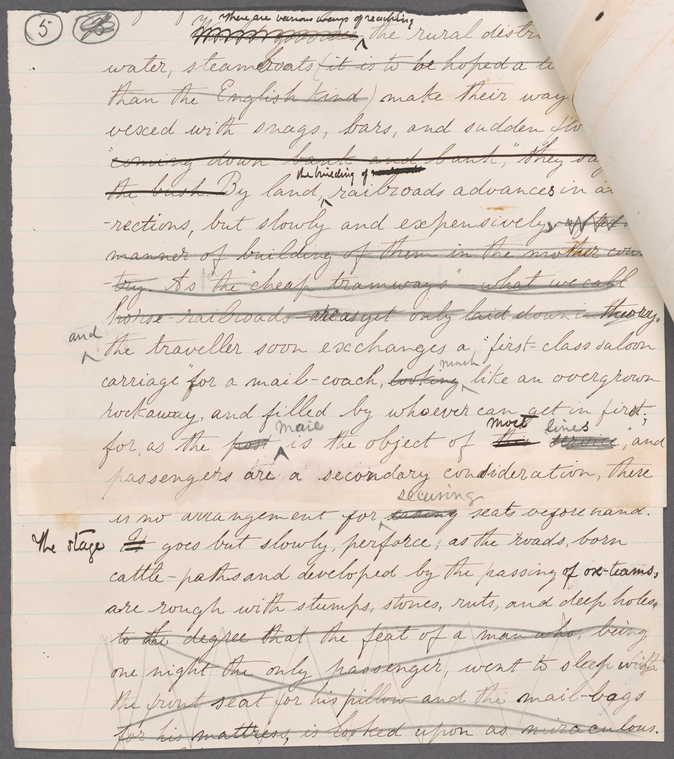 5
There are various ways of reaching
the rural distr
water, steamboats (it is to be hoped a
than the English kind) make their way
vexed with snags, bars, and sudden
"coming down bank and bank," they say
the building of
the bush. By land, railroads advances in
-rections, but slowly and expensively,
manner of building of them in the mother coun
-try. As the "cheap tramways" what we call
horse-railroads are as yet only laid down in theory.
and
the traveller soon exchanges a "first-class saloon
much
carriage" for a mail-coach, looking like an overgrown
rockaway, and filled by whoever can get in first;
mail most lines
for, as the post is the object of the service, and
passengers are a secondary consideration, there
securing
is no arrangement for taking seats beforehand.
The stage It goes but slowly, perforce; as the roads, born
cattle-paths and developed by the passing of ox-teams,
are rough with stumps, stones, ruts, and deep holes,
to the degree that the feat of a man who, being
one night the only passenger, went to sleep with
the front seat for his pillow and the mail-bags
for his mattress, is looked upon as miraculous.